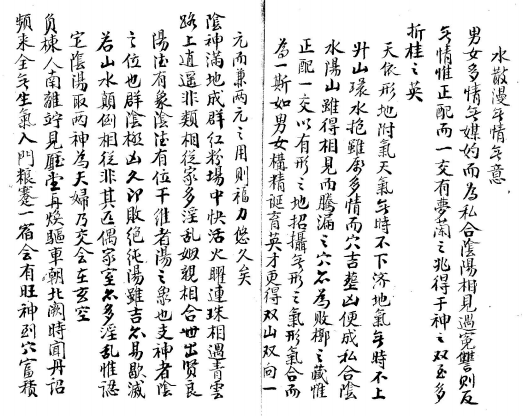 水散无情无意
男女多情无媒妁而為私合陰陽相見遇寃讐則反
无情惟正配而一交有夢蘭之兆得干神之双至多
折桂之英
天依形地附氣天氣无時不下济地氣无時不上
升山環水抱雖属多情而穴吉葬凶便成私合陰
水陽山雖得相見而騰漏之穴名為敗槨之藏惟
正配一交以有形之地招攝无形之氣形氣合而
為一斯如男女構精誕育英才更得双山双向一
元而兼两元之用則福力悠久矣
陰神满地成群红粉場中快活火曜連珠相遇青雲
路上逍遥非類相従家多淫乱姻親相合世出賢良
陽法有象陰法有位干维者陽之象也支神者陰
之位也群陰極凶久即敗绝纯陽雖吉亦易歇滅
若山水顛倒相従非其匹偶家室亦多淫乱惟認
定陰陽取两神為夫婦乃交会在玄空
負棟人南離竚見廳堂再煥驅車朝北阙時闻丹詔
頻来全无生氣入門粮蹇一宿会有旺神到穴富積